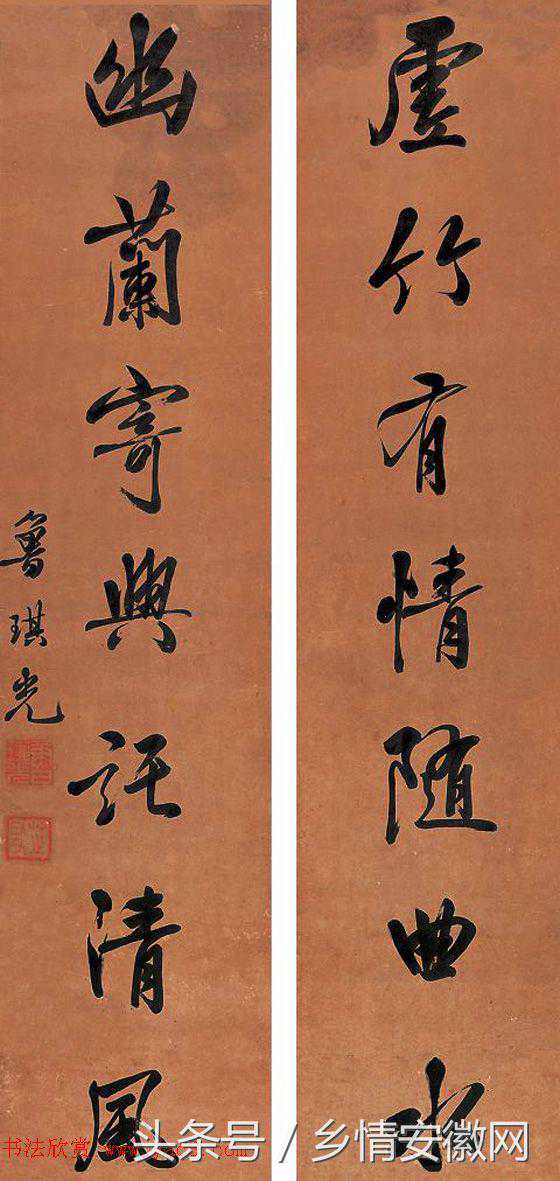 虚竹有情随曲水
幽蘭寄興託清風
魯琪光
书法欣赏
头条号 / 乡情安徽网